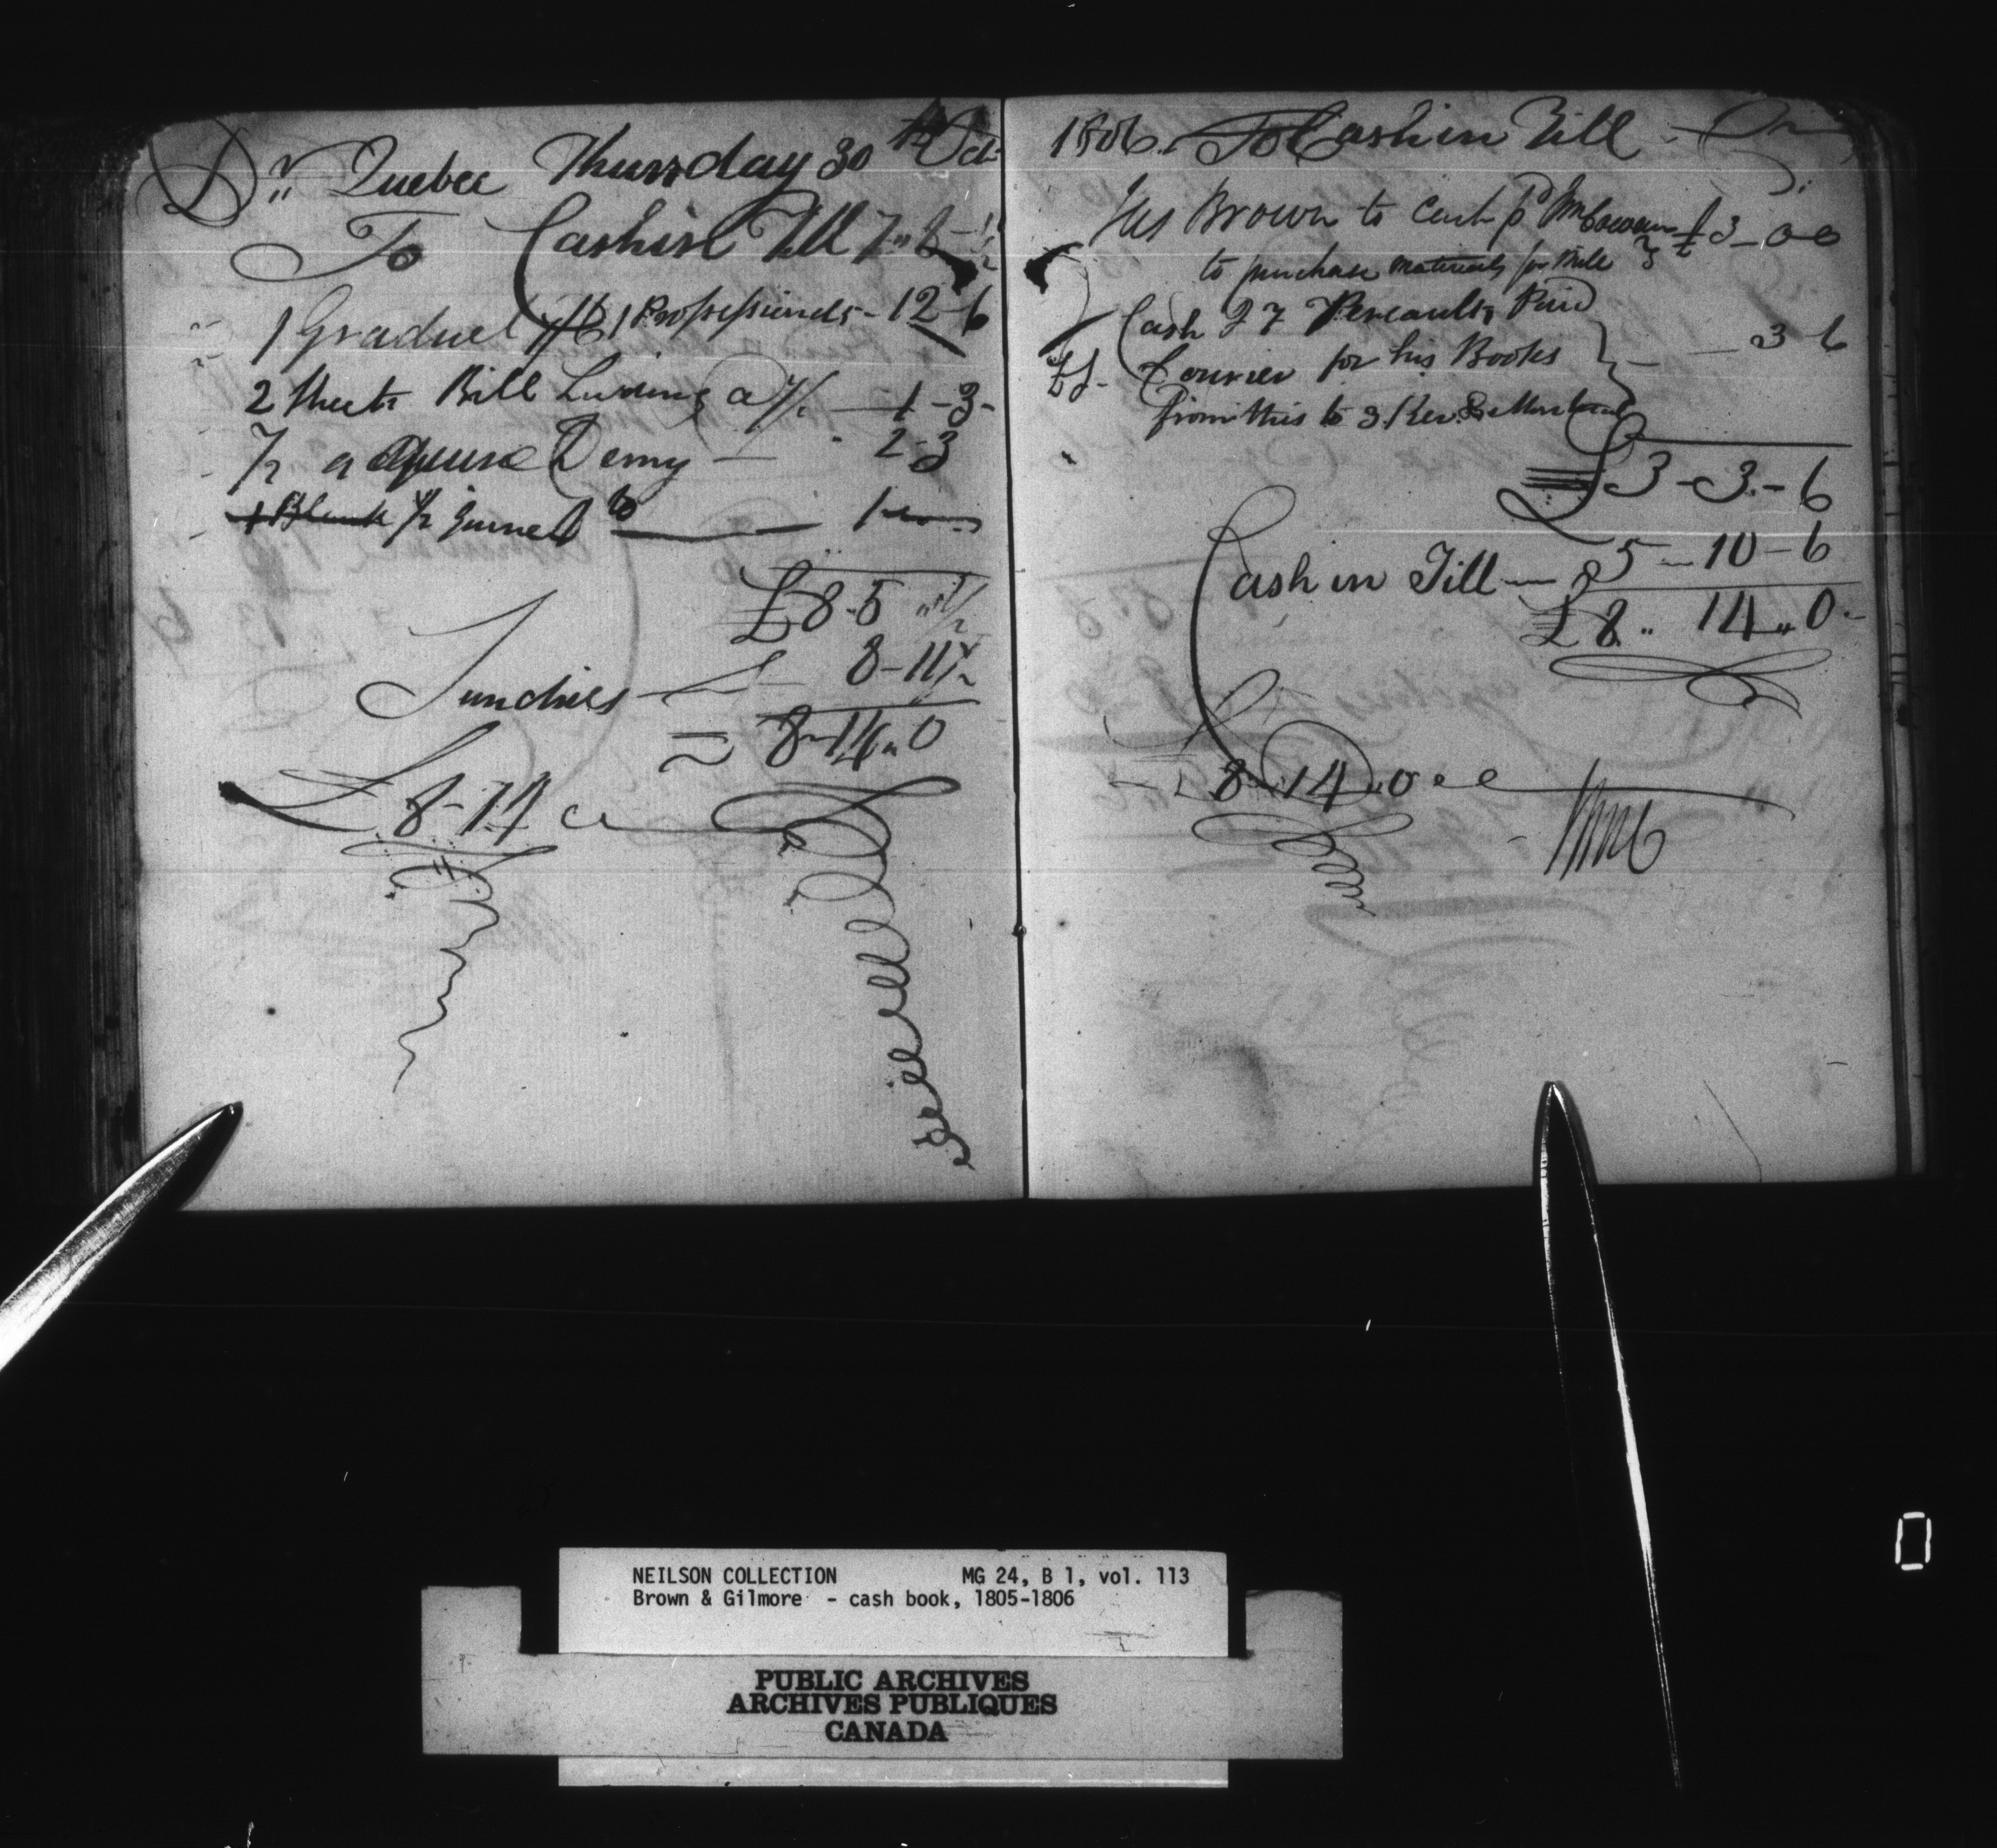 Dr Quebec Thursday 30th Oct
To Cash in Till 7 " 8 -
1 Graduel 1 Professionels - 12-6
2 Sheets Bill Lading a 7/ - 1-3-
1/2 a Quire Demy - 2-3
1 Blank 1/2 - 1
£8-5 " 1/2
Sundries - 8-11 1/2
8-14 " 0
£ 8-14
1806. To Cash in Till - Cr
Jas Brown to Cash pd Wm Cowan £3-0-0
to purchase materials for Mill
Cash J Perrault, Paid
Courier for his Books - 3 6
from this to 3 Rev. & Montreal
£3-3-6
Cash in Till - 5-10-6
£8 " 14 " 0-
8 14 " 0
NEILSON COLLECTION MG 24, B 1, vol. 113
Brown & Gilmore - cash book, 1805-1806
PUBLIC ARCHIVES
ARCHIVES PUBLIQUES
CANADA